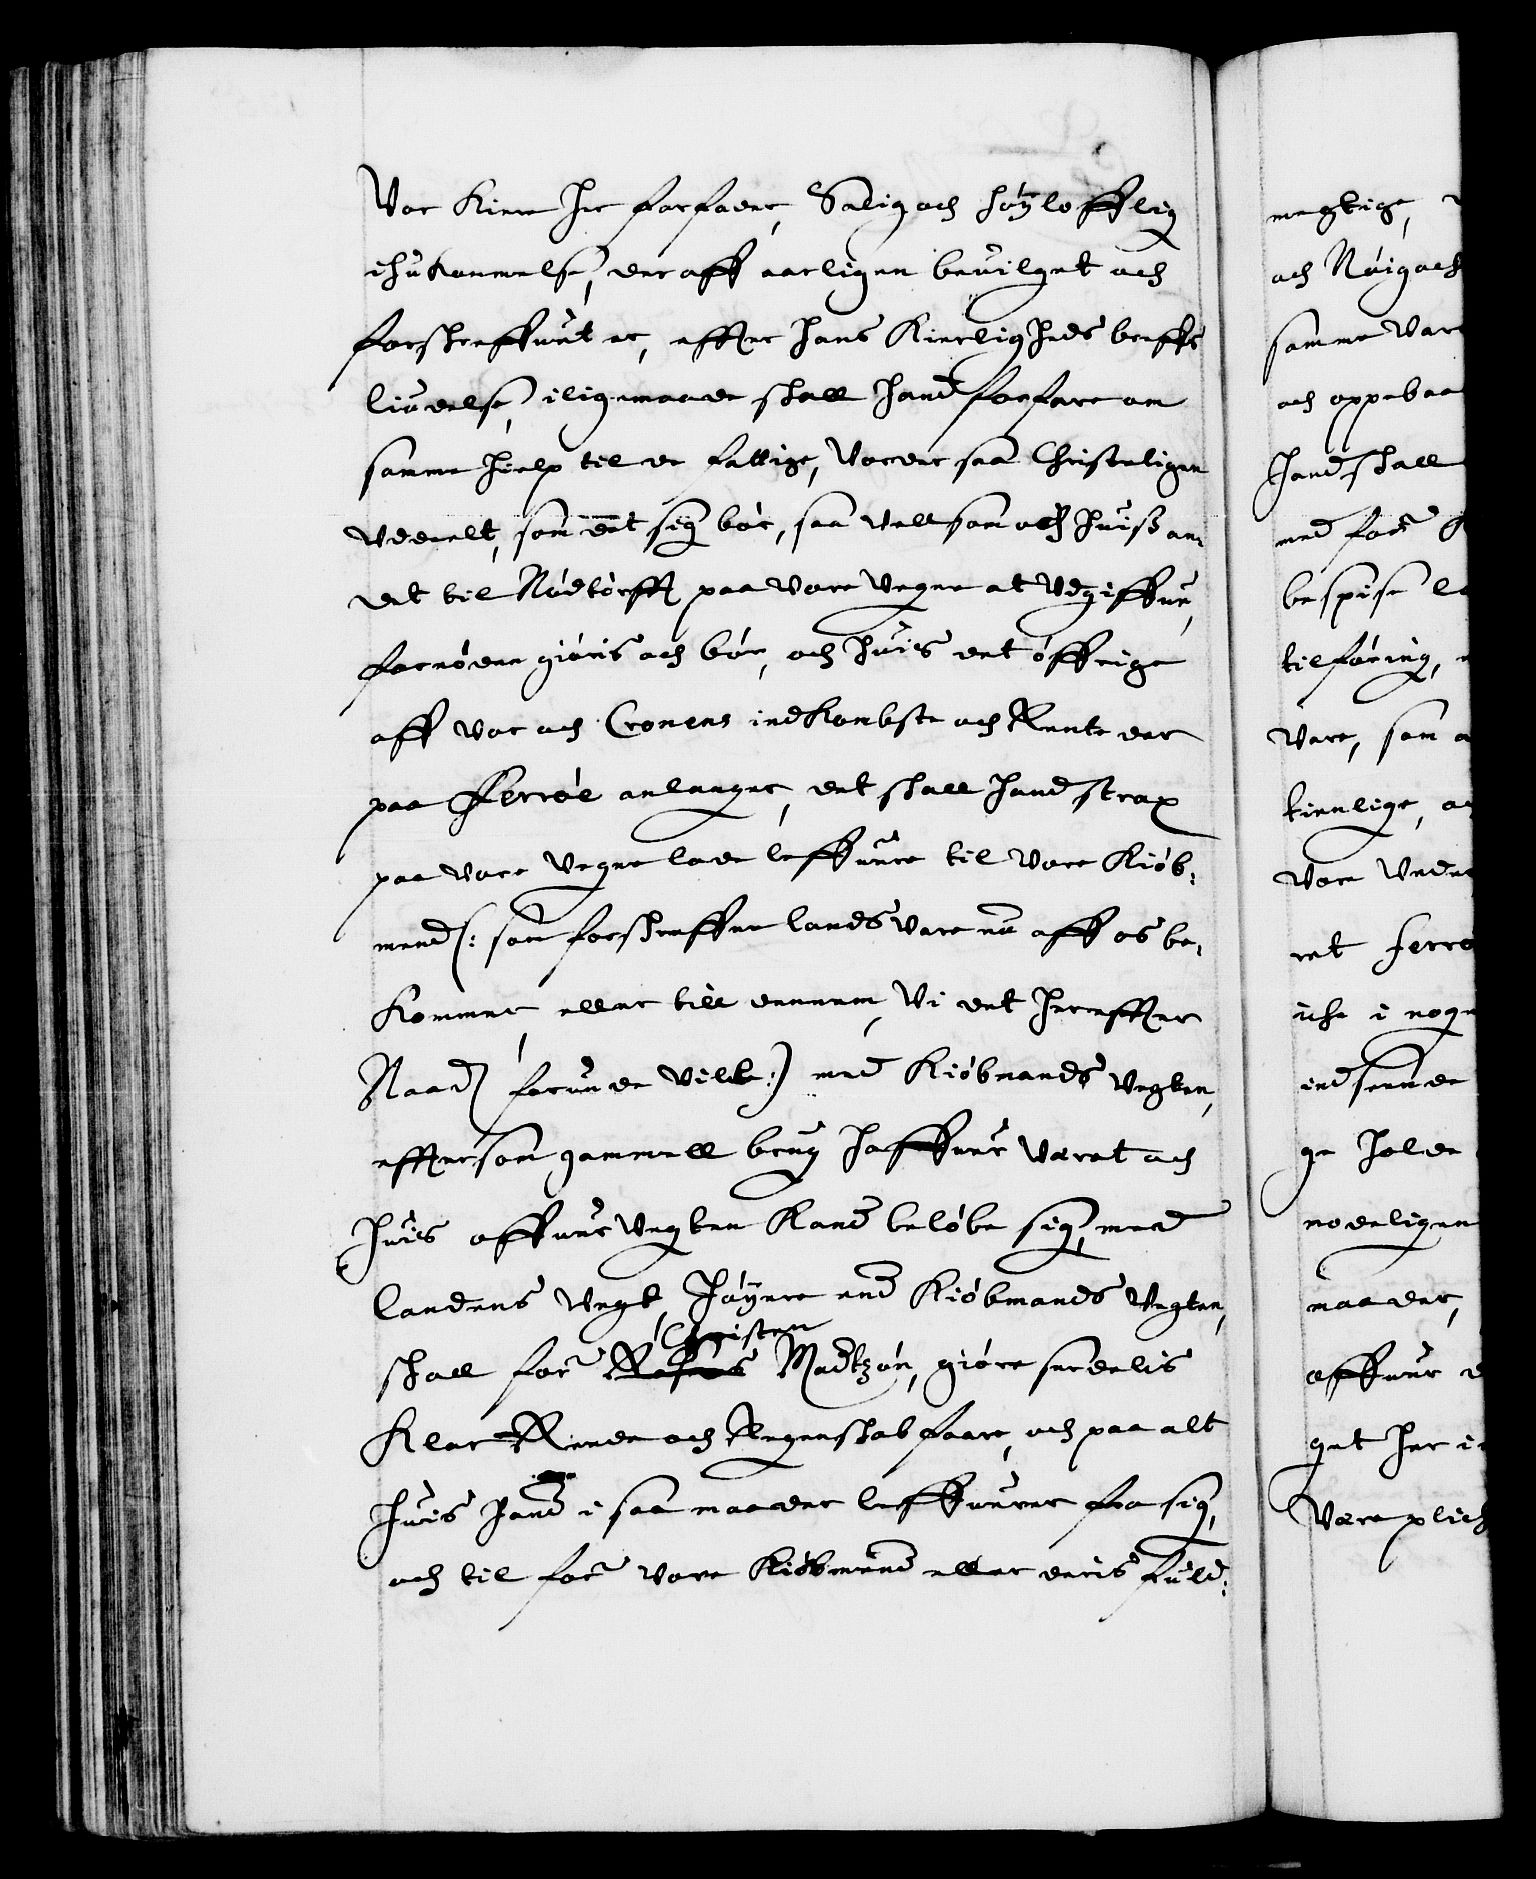 Vor Kiere Her forfader, Salig och høylofflig
ihukommelse, der aff aarligen beuilget och
forskreffuit er, effter hans Kierligheds breffs
liudelse, iligemaade skall hand forfare om
samme hielp til de fattige, vorder saa Christeligen
uddeelt, som det sig bør, saa vell som och huiss an-
det til Nødtørfft paa vore vegne at udgiffue,
fornøden giøris och bør, och huis det øffrige
aff vor och Cronens indkombste och Rente der
paa Ferröe anlanger, det skall hand strax
paa vore vegne lade leffuere til vore Kiøb-
mend (: som forskreffne lands vare nu aff os be-
kommer, eller till dennem, Vi det hereffter
Naad: forunde ville :) med Kiøbmands vegten,
effter som gammell brug haffuer veret och
huis offuer vegten kand beløbe sig, med
landens vegt, høyere end Kiøbmands vegten,
Christen
skall for: Madtzøn, giøre serdelis
Klar Rede och Regenskab faare, och paa alt
huis hand i saa maader leffuerer fra sig,
och til for: vore Kiøbmend eller deris fuld-
megtige,
och Nøigach
samme Vare
och oppebaa
Hand skall
med for:
bespise
tilføring,
Vare, som
tienlige,
vore Under
ret ferrö
iche i nogn
indsende
ge holde
nodeligen
maader,
offuer
get her i
Vere plich